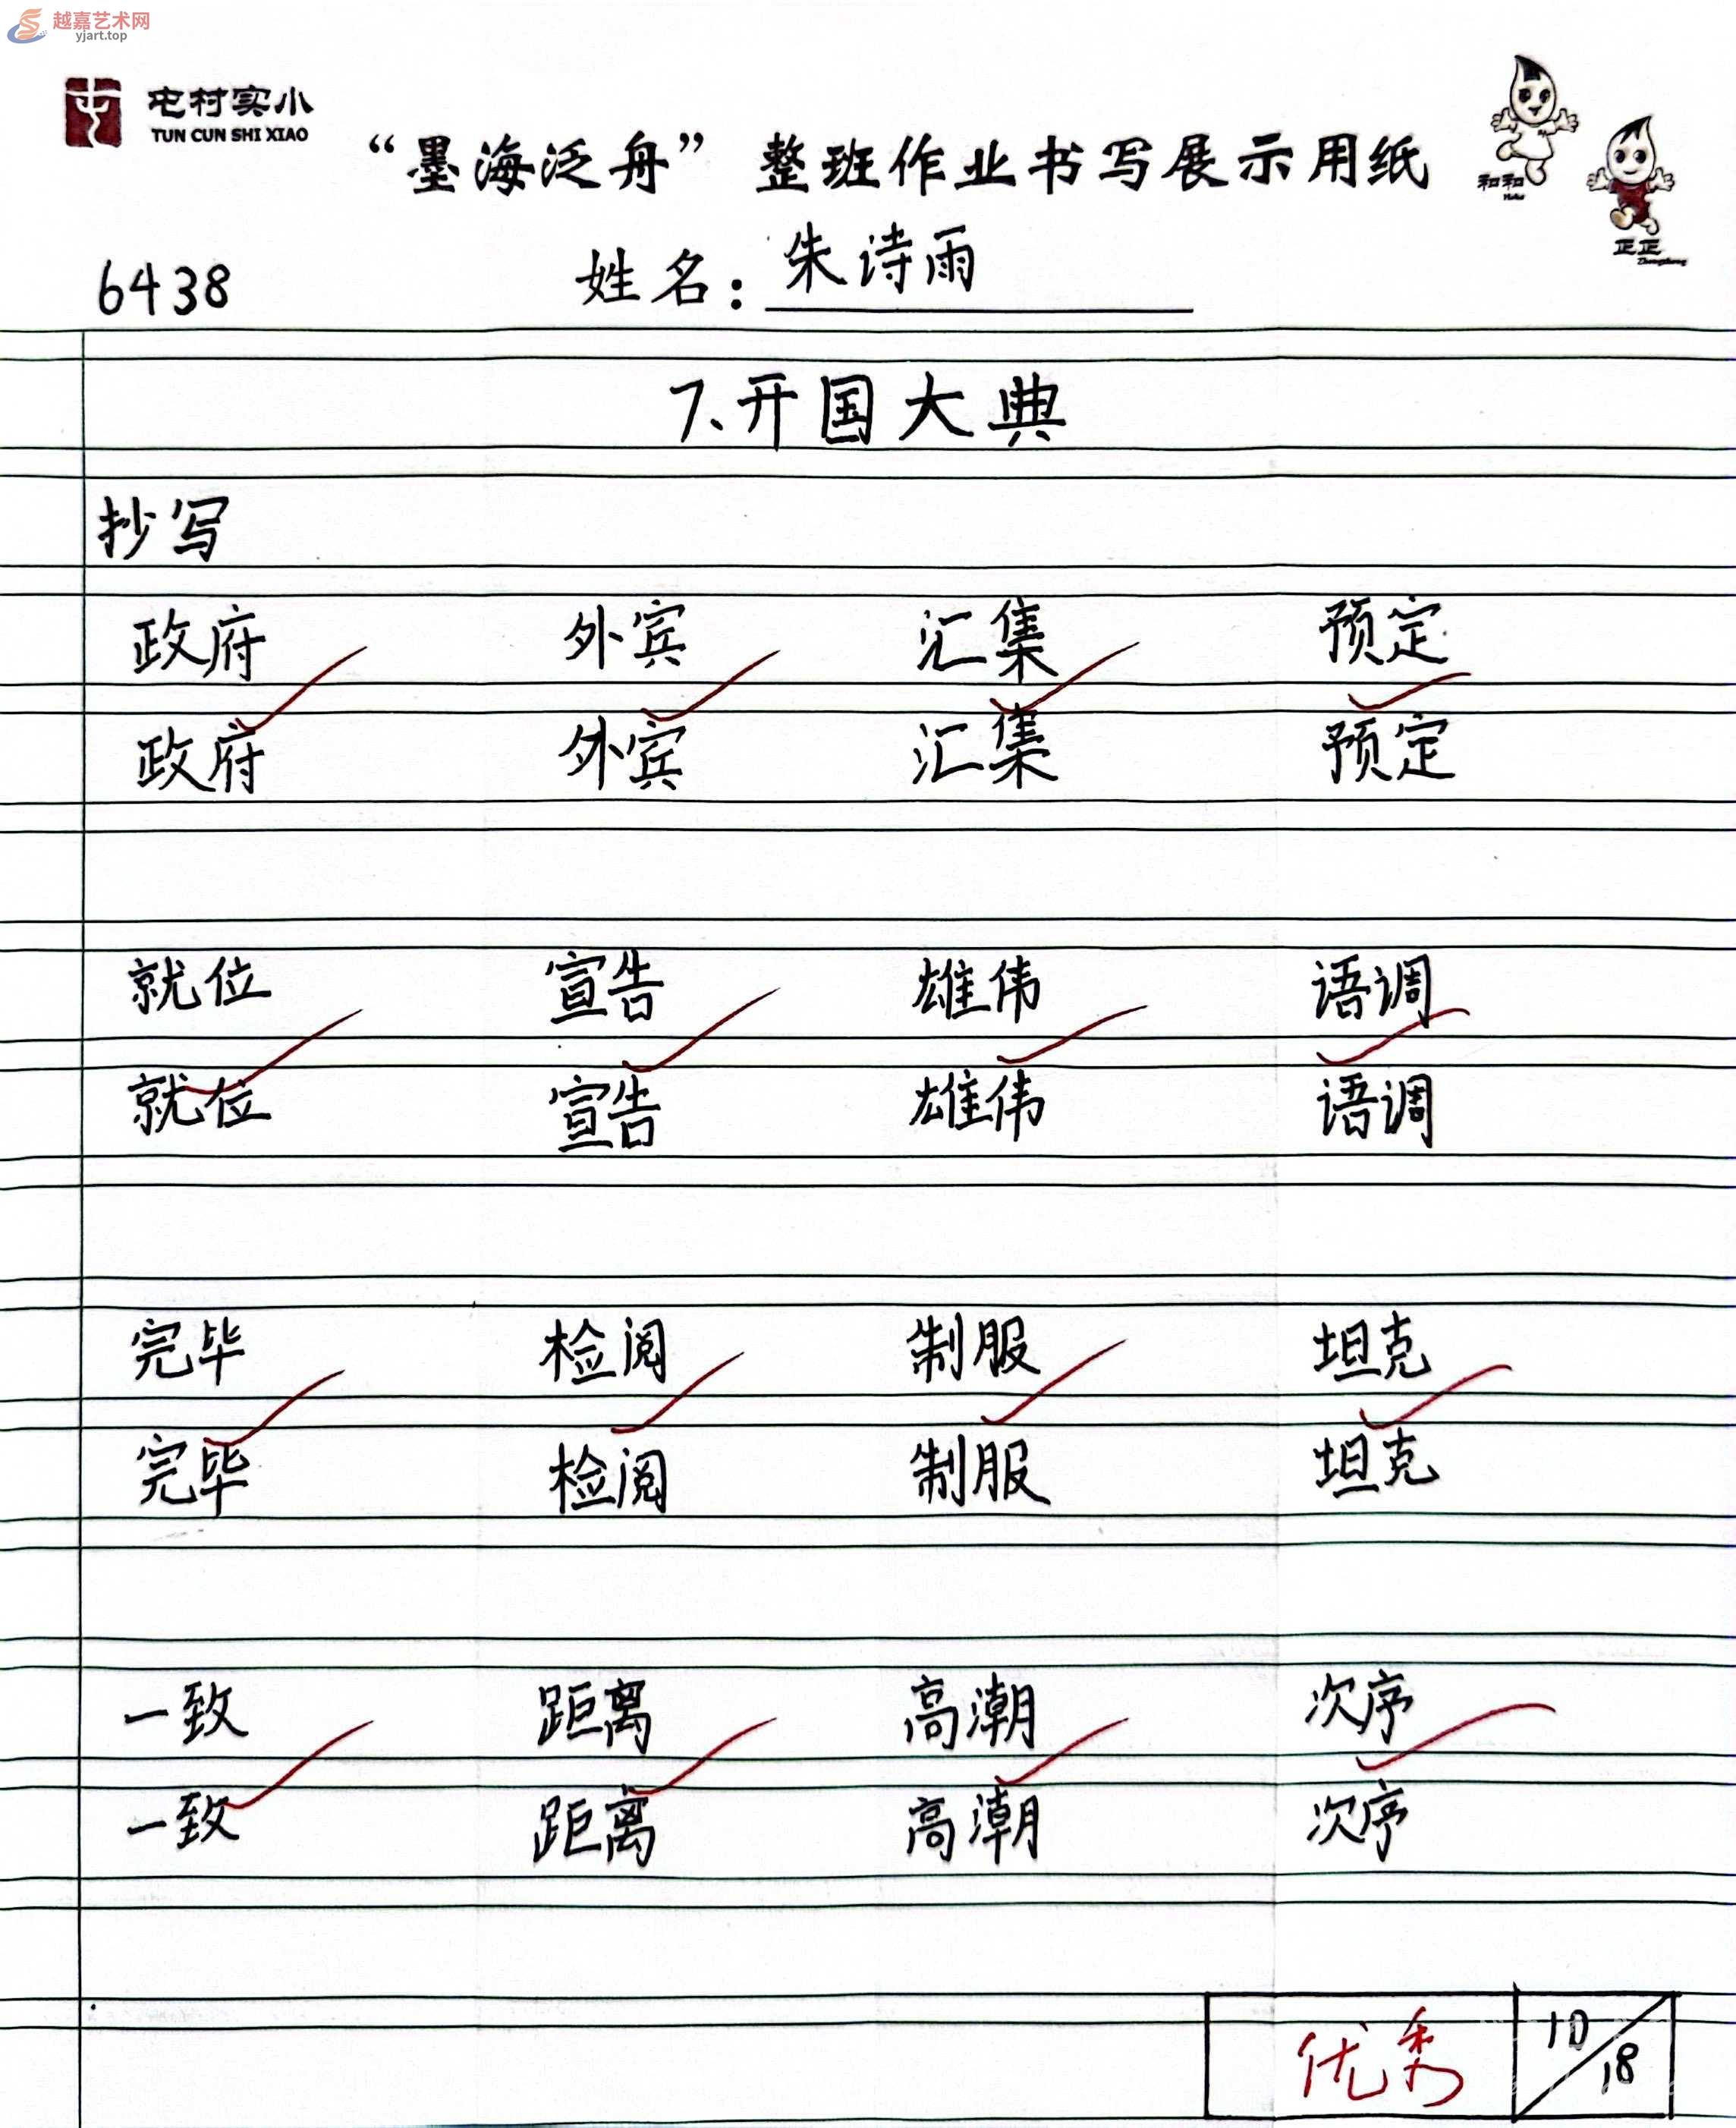 越嘉艺术网
yjart.top
屯村实小
TUN CUN SHI XIAO
“墨海泛舟” 整班作业书写展示用纸
和和
正正
6438 姓名：朱诗雨
7、开国大典
抄写
政府 外宾 汇集 预定
政府 外宾 汇集 预定
就位 宣告 雄伟 语调
就位 宣告 雄伟 语调
完毕 检阅 制服 坦克
完毕 检阅 制服 坦克
一致 距离 高潮 次序
一致 距离 高潮 次序
优秀 10/18